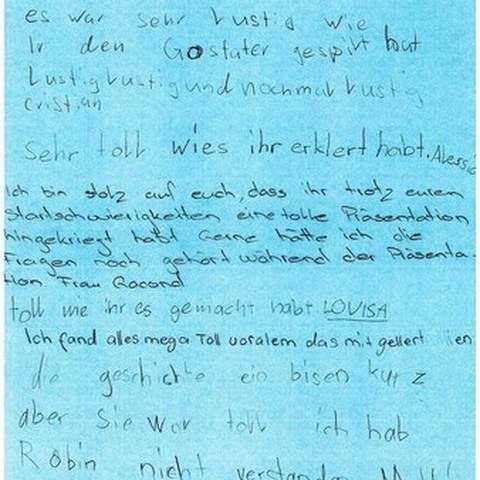 es war sehr lustig wie
Ir den Gostater gespilt hat
Lustig Lustig und nochmal Lustig
cristian
Sehr toll wies ihr erklert habt. Alessio
Ich bin stolz auf euch, dass ihr trotz euren
Startschwierigkeiten eine tolle Präsentation
hingekriegt habt Gerne hätte ich die
Fragen noch gehört während der Präsenta-
tion Frau Gacond
toll wie ihr es gemacht habt LOVISA
Ich fand alles mega Toll voralem das mit gellert
die geschichte ein bisen kurz
aber Sie war toll ich hab
Robin nicht verstanden